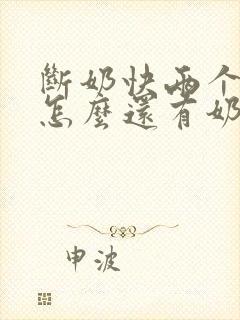 斷奶快兩个
怎麼還有奶
申波